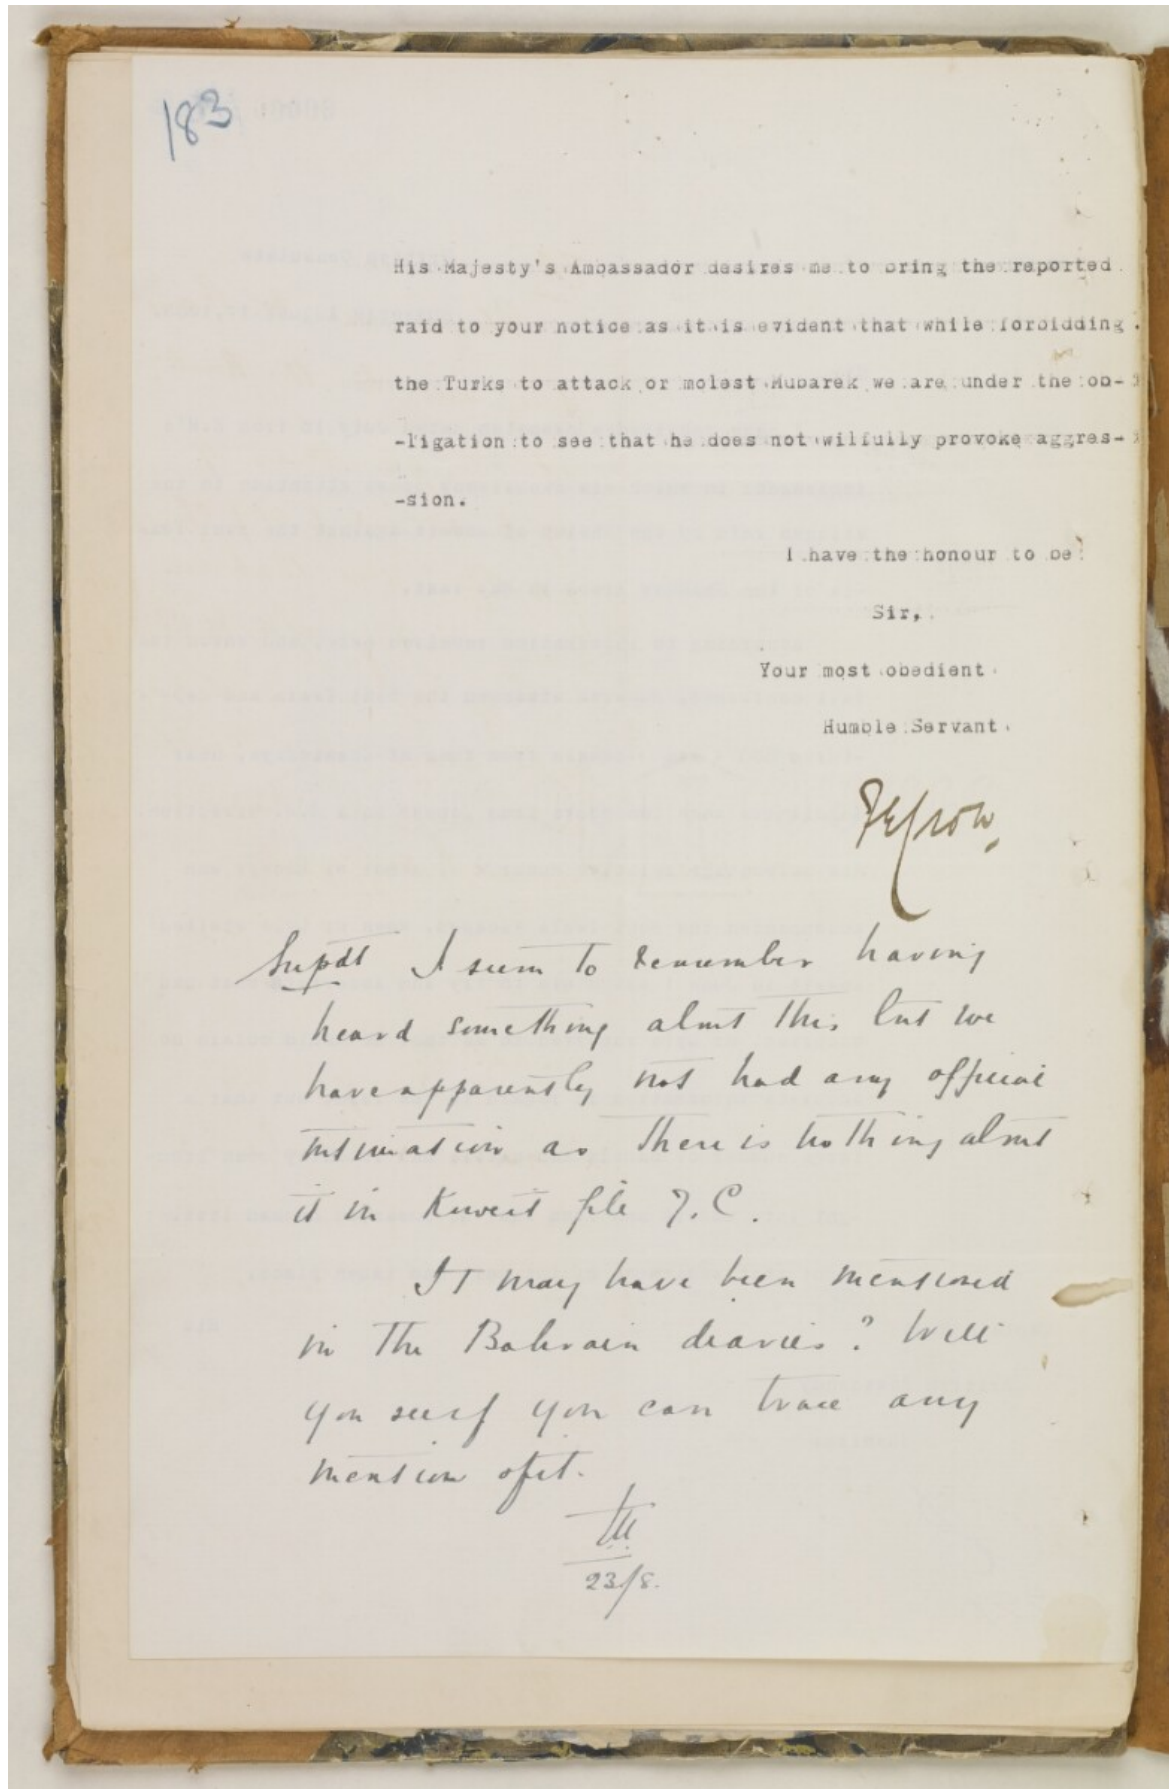 183
His Majesty's Ambassador desires me to bring the reported
raid to your notice as it is evident that while forbidding
the Turks to attack or molest Mubarek we are under the ob-
-ligation to see that he does not wilfully provoke aggres-
-sion.
I have the honour to be
Sir,
Your most obedient
Humble Servant.
F E Crow,
Supdt I seem to remember having
heard something about this but we
have apparently not had any official
intimation as there is nothing about
it in Kuweit file
It may have been mentioned
in the Bahrain diaries? Will
you see if you can trace any
mention of it.
23/8.